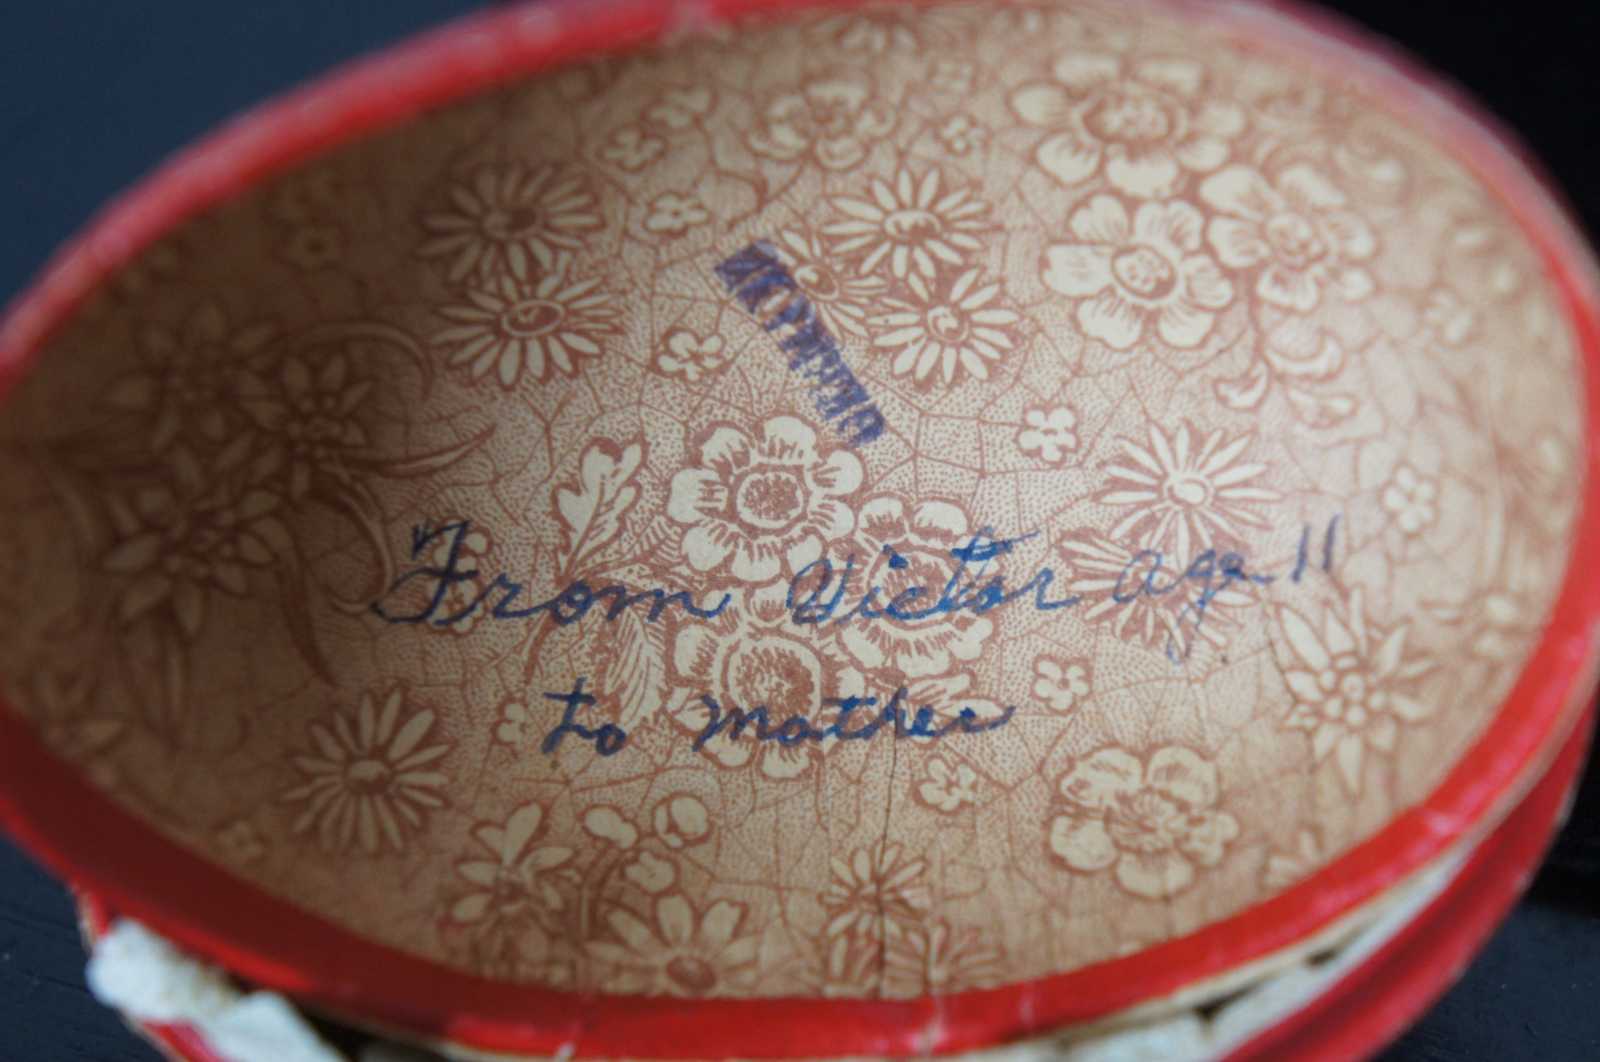 From Victor age 11
to Mother